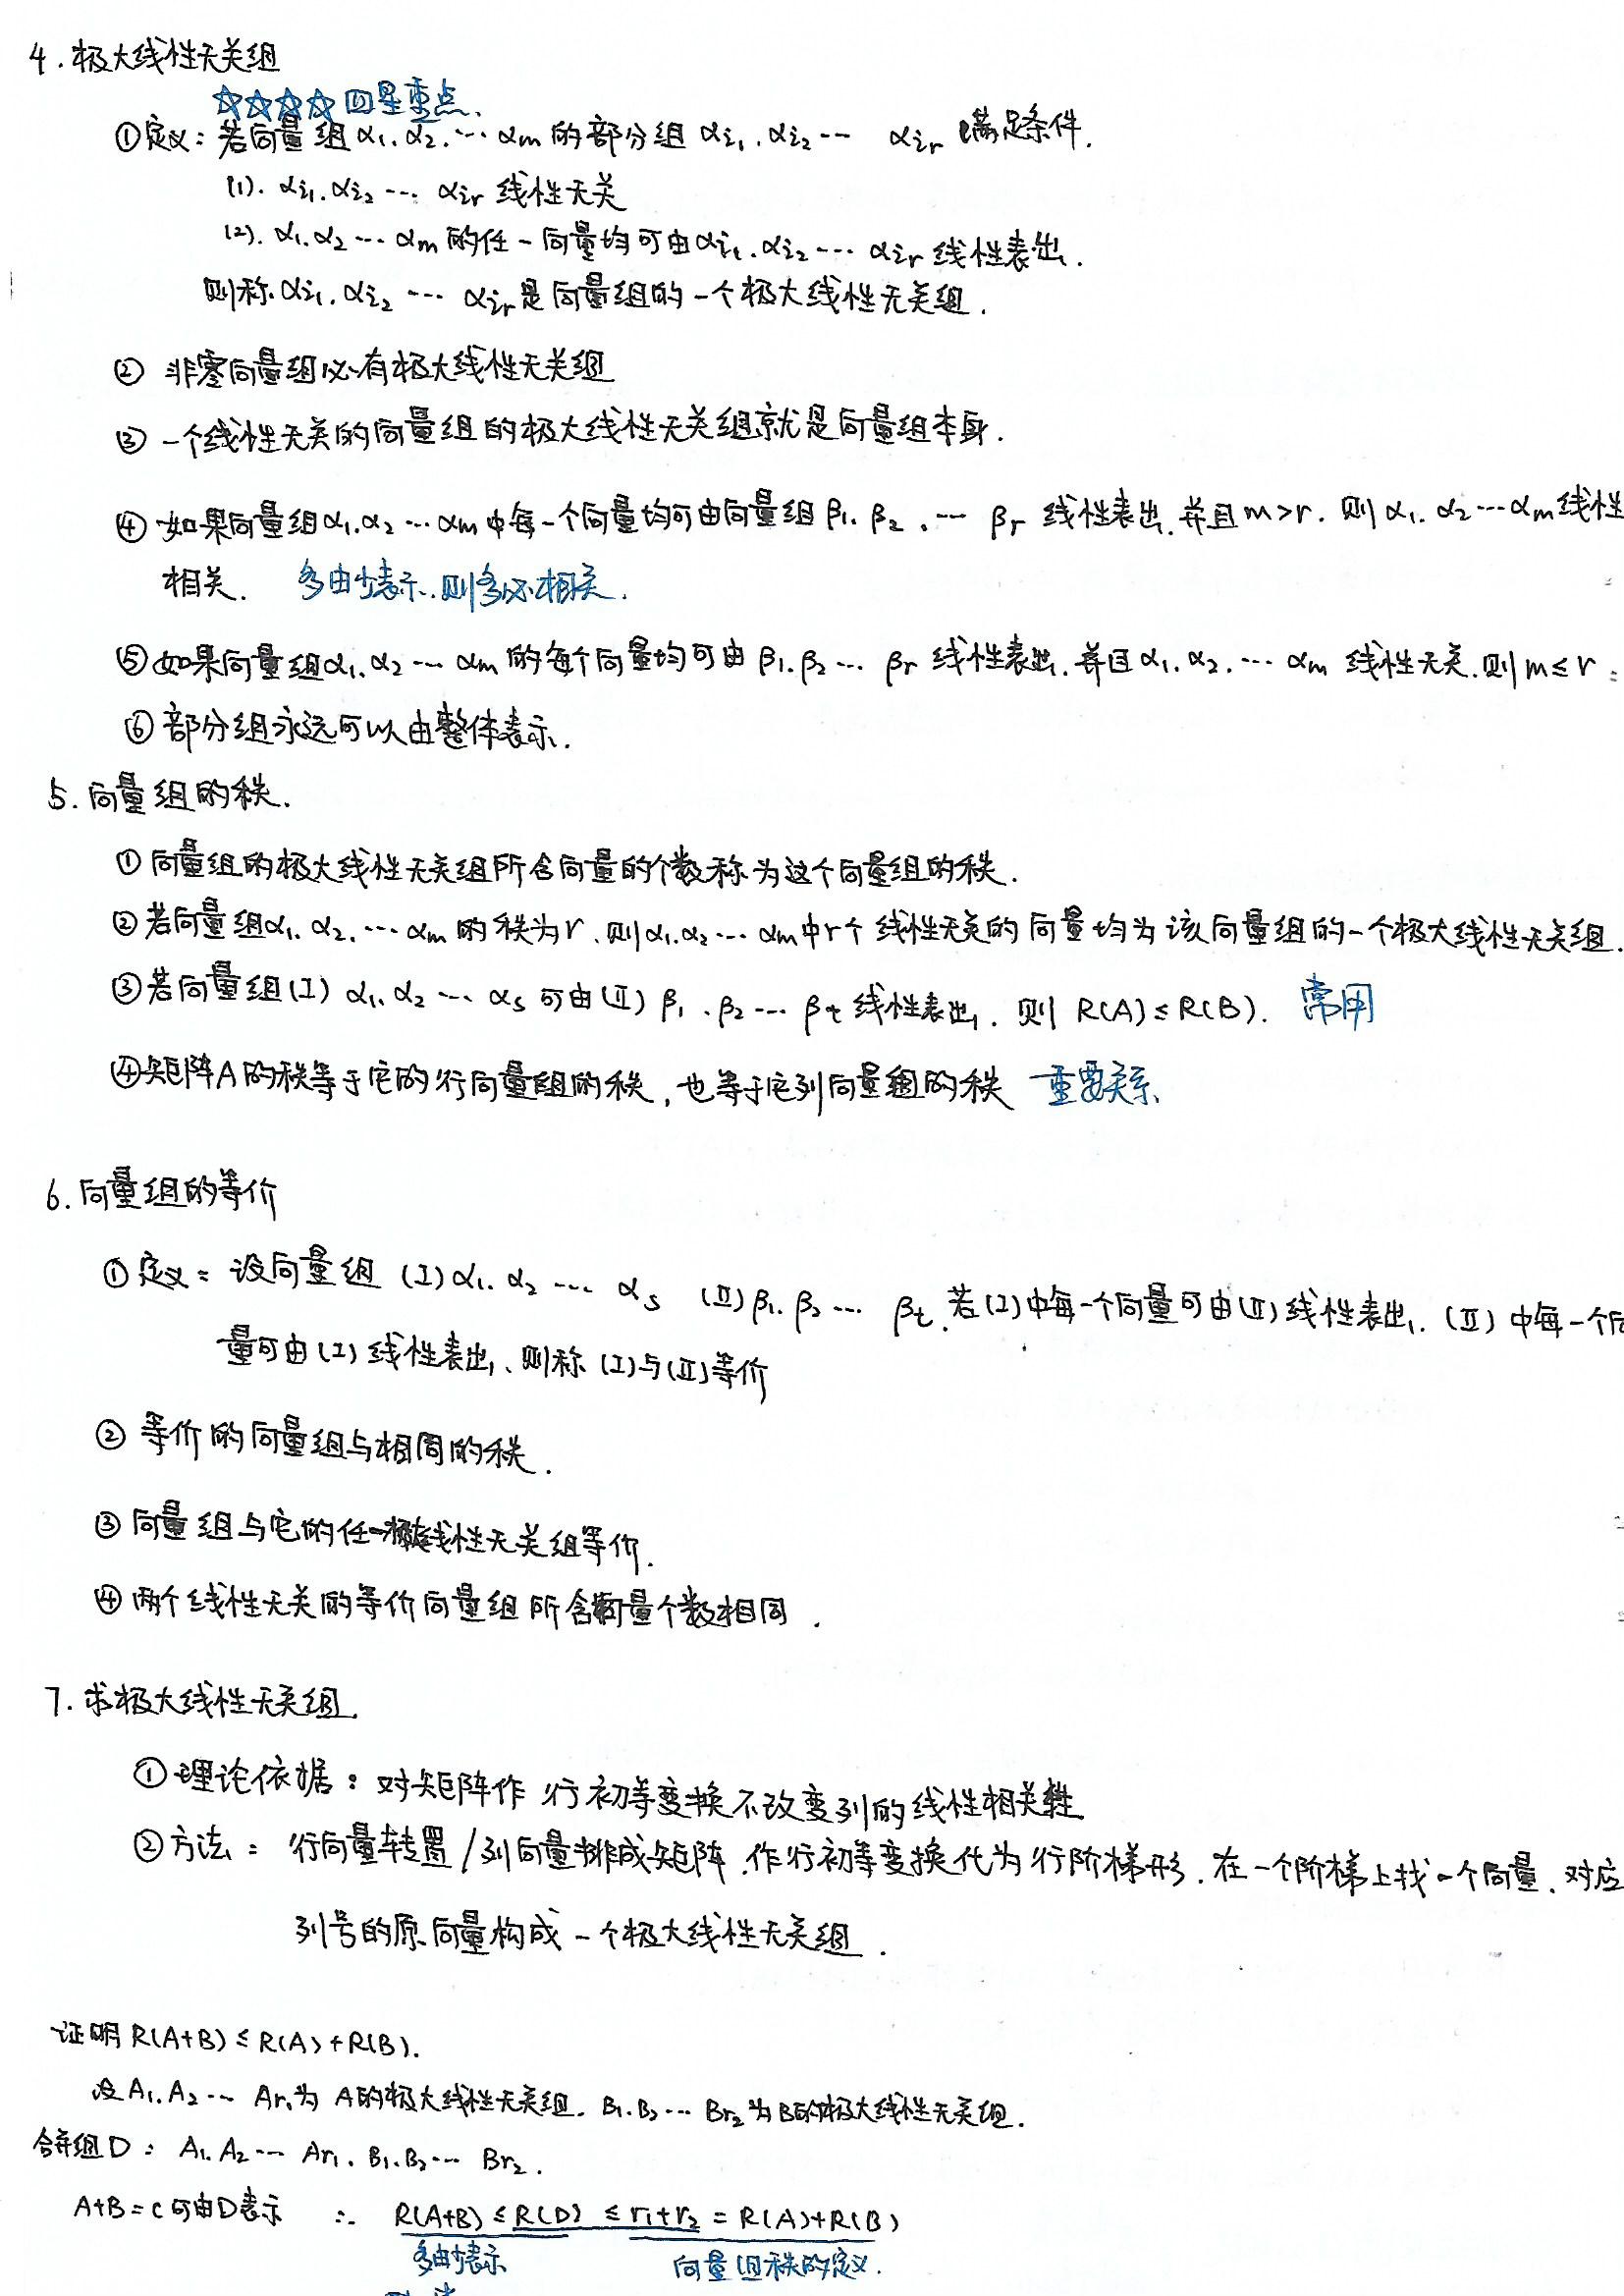 4. 极大线性无关组
☆☆☆☆ 四星重点.
①定义: 若向量组α₁.α₂.…αm的部分组 αi₁.αi₂… αir 满足条件.
(1). αi₁.αi₂… αir 线性无关
(2). α₁.α₂…αm的任一向量均可由αi₁.αi₂…αir线性表出.
则称.αi₁.αi₂ … αir是向量组的一个极大线性无关组.
② 非零向量组必有极大线性无关组
③ 一个线性无关的向量组的极大线性无关组就是向量组本身.
④ 如果向量组α₁.α₂…αm中每一个向量均可由向量组 β₁.β₂.… βr 线性表出.并且m>r. 则 α₁.α₂…αm线性
相关. 多由少表示.则多必相关.
⑤如果向量组α₁.α₂…αm的每个向量均可由 β₁.β₂… βr 线性表出.并且α₁.α₂.…αm 线性无关.则m≤r
⑥部分组永远可以由整体表示.
5. 向量组的秩.
① 向量组的极大线性无关组所含向量的个数称为这个向量组的秩.
②若向量组α₁.α₂.…αm的秩为r.则α₁.α₂…αm中r个线性无关的向量均为该向量组的一个极大线性无关组.
③若向量组(I) α₁.α₂…αs可由(II) β₁.β₂…βt线性表出. 则 R(A)≤R(B). 常用
④矩阵A的秩等于它的行向量组的秩,也等于它列向量组的秩 重要关系
6. 向量组的等价
①定义: 设向量组 (I)α₁.α₂ … αs (II)β₁.β₂… βt.若(I)中每一个向量可由(II)线性表出. (II)中每一个向
量可由(I)线性表出.则称(I)与(II)等价
② 等价的向量组与相同的秩.
③ 向量组与它的任一极大线性无关组等价.
④ 两个线性无关的等价向量组所含向量个数相同.
7. 求极大线性无关组.
①理论依据: 对矩阵作行初等变换不改变列的线性相关性
②方法: 行向量转置/列向量排成矩阵.作行初等变换化为行阶梯形.在一个阶梯上找一个向量.对应
列号的原向量构成一个极大线性无关组.
证明 R(A+B)≤R(A)+R(B).
设A₁.A₂… Ar₁为 A的极大线性无关组. B₁.B₂… Br₂为B的极大线性无关组.
合并组D: A₁.A₂… Ar₁. B₁.B₂… Br₂.
A+B=C可由D表示 ∴ R(A+B)≤R(D)≤r₁+r₂=R(A)+R(B)
多由少表示 向量组秩的定义.